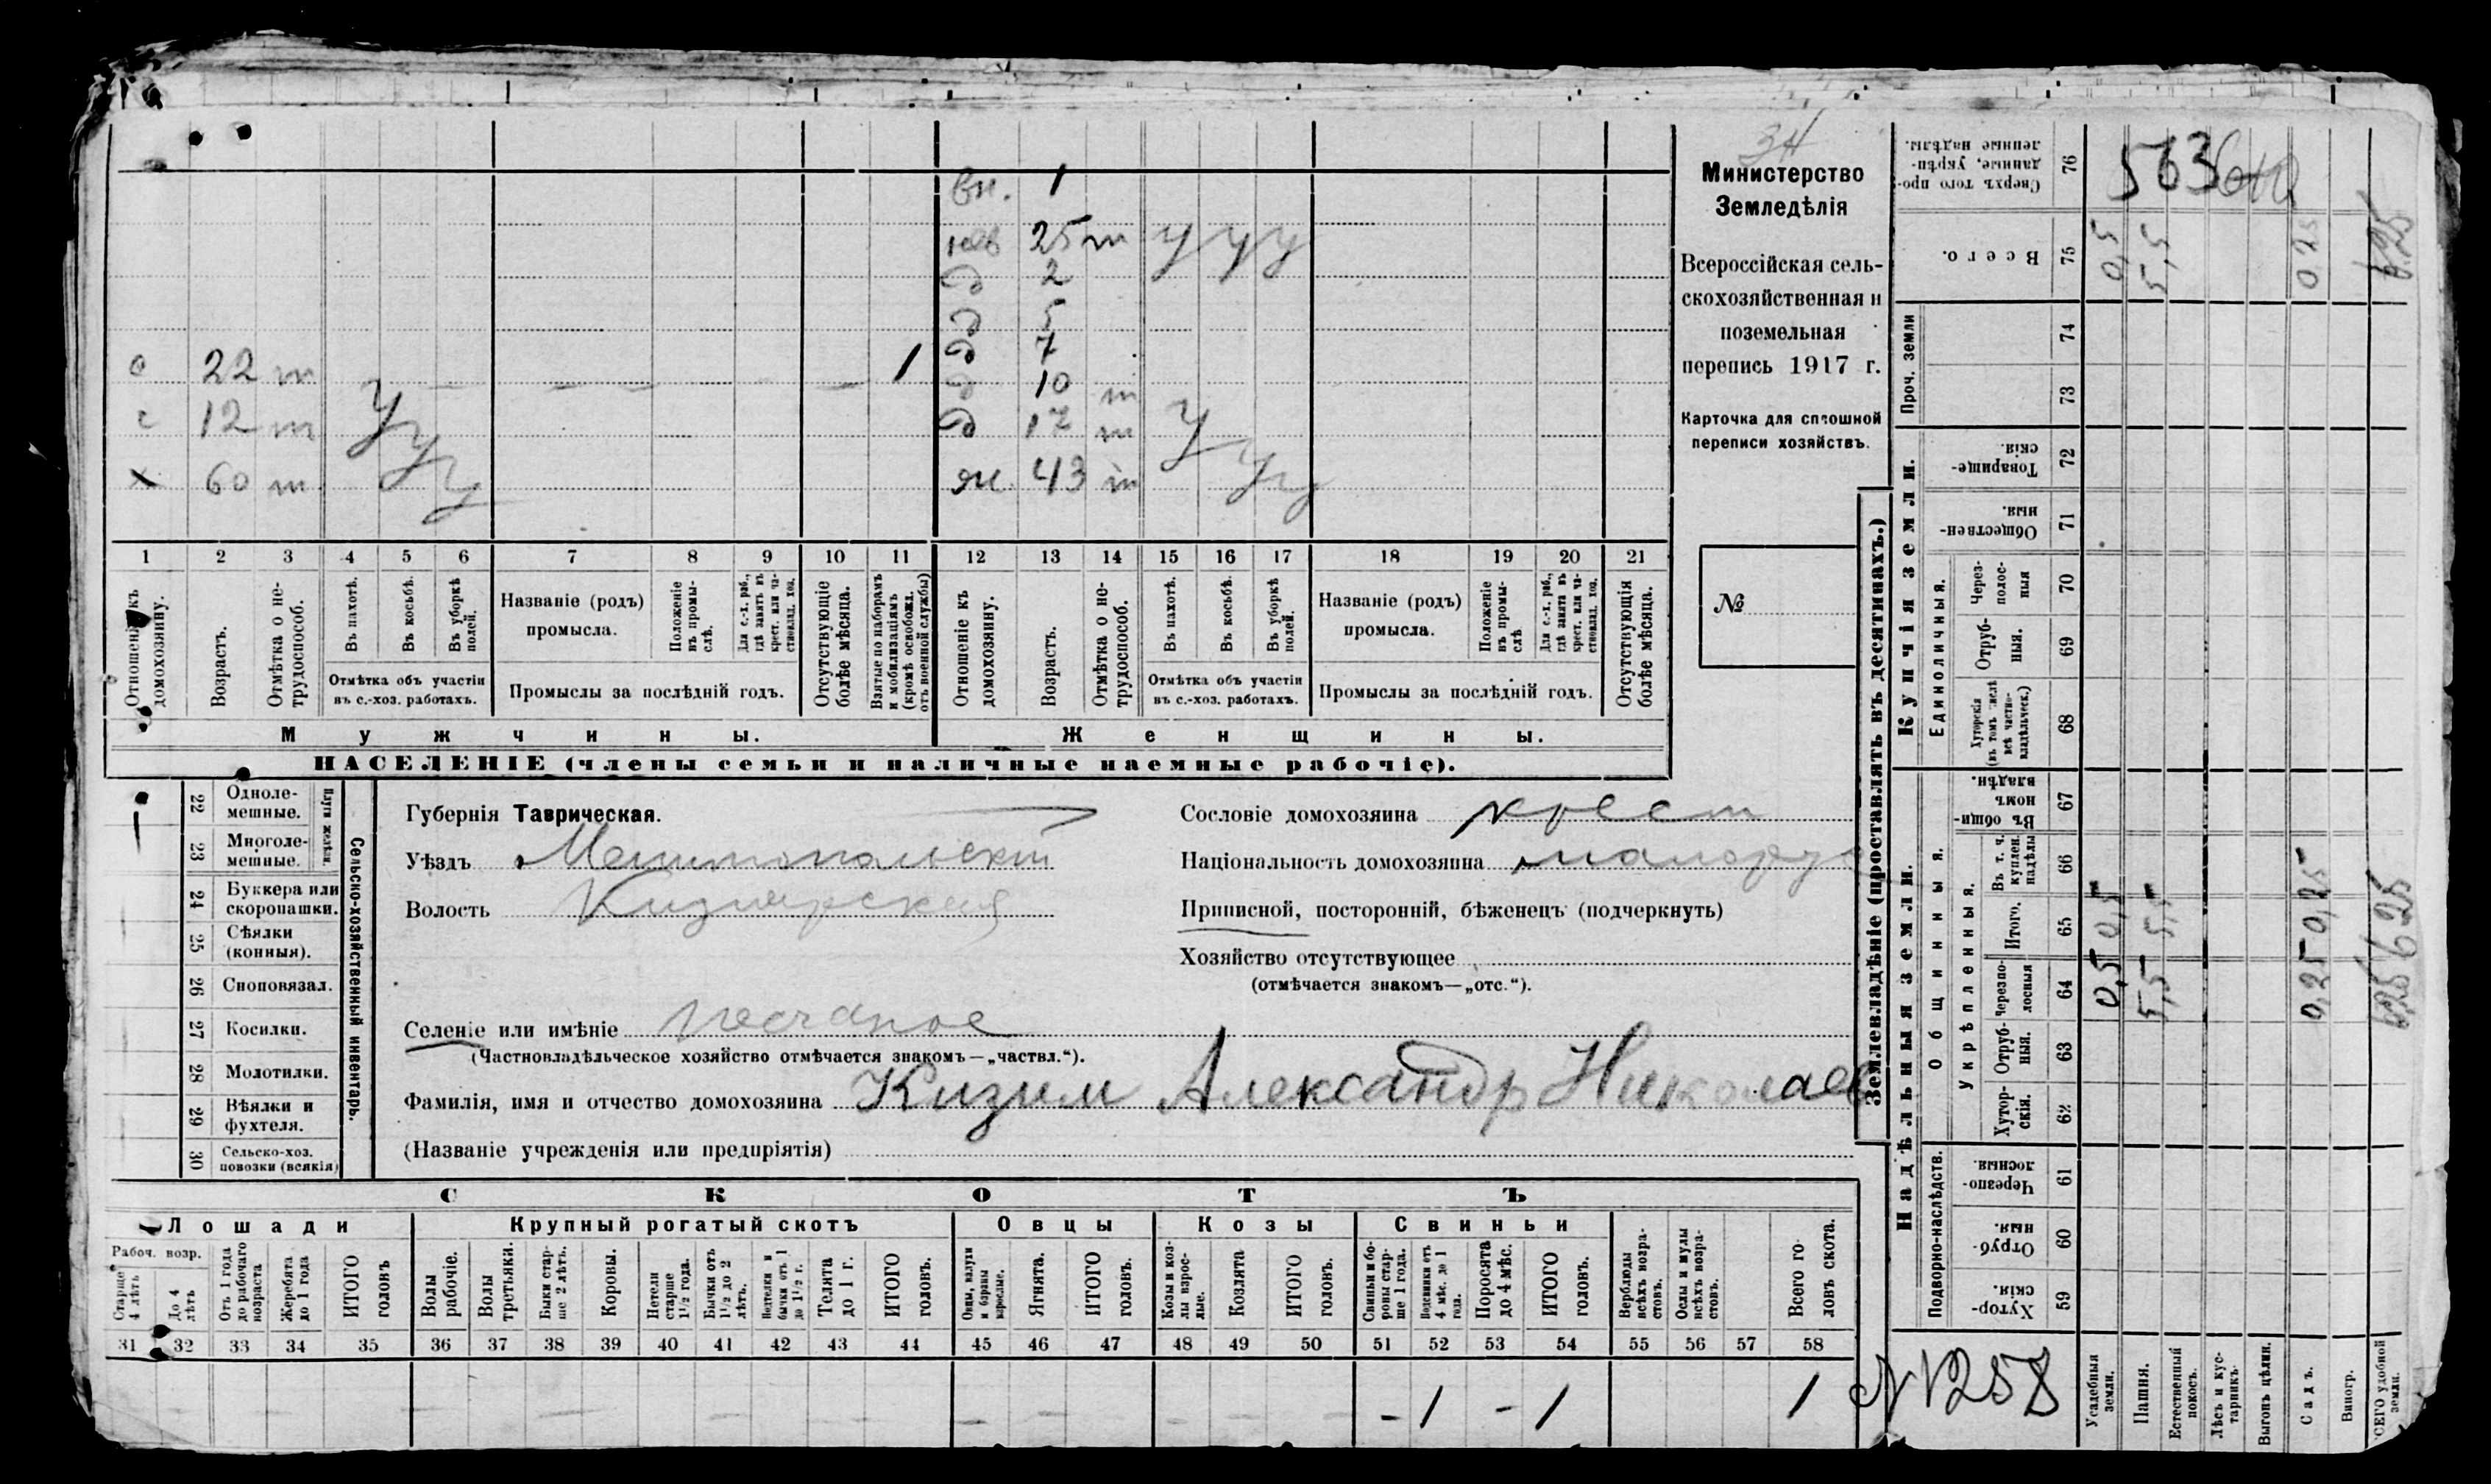 ЗН
Министерство
Земледѣлія
Всероссійская сель-
скохозяйственная и
поземельная
перепись 1917 г.
Карточка для сплошной
переписи хозяйствъ.
№
вн. 1
нев 25 т у у у
д 2
д 5
д 7
с 22 т — — — — — 1
д 10 т
с 12 т у у
д 17 т у
х 60 т у
ж 43 т у у
1 2 3 4 5 6 7 8 9 10 11 12 13 14 15 16 17 18 19 20 21
Отношеніе къ домохозяину.
Возрастъ.
Отмѣтка о не-трудоспособ.
Въ пахотѣ.
Въ косьбѣ.
Въ уборкѣ полей.
Отмѣтка объ участіи въ с.-хоз. работахъ.
Названіе (родъ) промысла.
Положеніе въ промы-слѣ.
Для с.-х. раб., гдѣ занятъ въ крест. или ча-стновлад. хоз.
Промыслы за послѣдній годъ.
Отсутствующіе болѣе мѣсяца.
Взятые по наборамъ и мобилизаціямъ (кромѣ освобожд. отъ военной службы)
Отношеніе къ домохозяину.
Возрастъ.
Отмѣтка о не-трудоспособ.
Въ пахотѣ.
Въ косьбѣ.
Въ уборкѣ полей.
Отмѣтка объ участіи въ с.-хоз. работахъ.
Названіе (родъ) промысла.
Положеніе въ промы-слѣ
Для с.-х. раб., гдѣ занята въ крест. или ча-стновлад. хоз.
Промыслы за послѣдній годъ.
Отсутствующія болѣе мѣсяца.
Мужчины.
Женщины.
НАСЕЛЕНІЕ (члены семьи и наличные наемные рабочіе).
22 Одноле-мешные.
23 Многоле-мешные.
24 Буккера или скоропашки.
25 Сѣялки (конныя).
26 Сноповязал.
27 Косилки.
28 Молотилки.
29 Вѣялки и фухтеля.
30 Сельско-хоз. повозки (всякія)
Сельско-хозяйственный инвентарь.
Губернія Таврическая.
Уѣздъ Мелитопольскій
Волость Кизіярская
Селеніе или имѣніе Песчаное
(Частновладѣльческое хозяйство отмѣчается знакомъ—„частвл.“).
Фамилія, имя и отчество домохозяина Кизим Александр Николаев
(Названіе учрежденія или предпріятія)
Сословіе домохозяина крест
Національность домохозяина малорус
Приписной, посторонній, бѣженецъ (подчеркнуть)
Хозяйство отсутствующее
(отмѣчается знакомъ—„отс.“).
СКОТЪ
Лошади
Крупный рогатый скотъ
Овцы
Козы
Свиньи
Рабоч. возр.
Старше 4 лѣтъ
До 4 лѣтъ
Отъ 1 года до рабочаго возраста
Жеребята до 1 года
ИТОГО головъ
Волы рабочіе.
Волы третьяки.
Быки стар-ше 2 лѣтъ.
Коровы.
Нетели старше 1½ года.
Бычки отъ 1½ до 2 лѣтъ.
Телята до 1 г.
ИТОГО головъ.
Ягнята.
ИТОГО головъ.
Козы и коз-лы взрос-лые.
Козлята
ИТОГО головъ.
Свиньи и бо-ровы стар-ше 1 года.
Поросята до 4 мѣс.
ИТОГО головъ.
Верблюды всѣхъ возра-стовъ.
Ослы и мулы всѣхъ возра-стовъ.
Всего го-ловъ скота.
31 32 33 34 35 36 37 38 39 40 41 42 43 44 45 46 47 48 49 50 51 52 53 54 55 56 57 58
– 1 – 1 1
N1258
Землевладѣніе (проставлять въ десятинахъ.)
Надѣльныя земли.
Купчія земли.
Проч. земли
Подворно-наслѣдств.
Общинныя.
Укрѣпленныя.
Единоличныя.
59 Хутор-скія.
60 Отруб-ныя.
61 Черезпо-лосныя.
62 Хутор-скія.
63 Отруб-ныя.
64 Черезпо-лосныя
65 Итого.
66 Въ т. ч. куплен. надѣлы
67 Въ общи-номъ владѣн.
68 Хуторскія (въ томъ числѣ всѣ частно-владѣльческ.)
69 Отруб-ныя.
70 Через-полос-ныя
71 Обществен-ныя.
72 Товарище-скія
73
74
75 Всего.
76 Сверхъ того про-данные, укрѣп-ленные надѣлы.
563
Усадебныя земли. 0,5 0,5 0,5
Пашня. 5,5 5,5 5,5
Естественный покосъ.
Лѣсъ и кус-тарникъ
Выгонъ цѣлин.
Садъ. 0,25 0,25 0,25
Виногр.
ВСЕГО удобной земли. 6,25 6,25 6,25